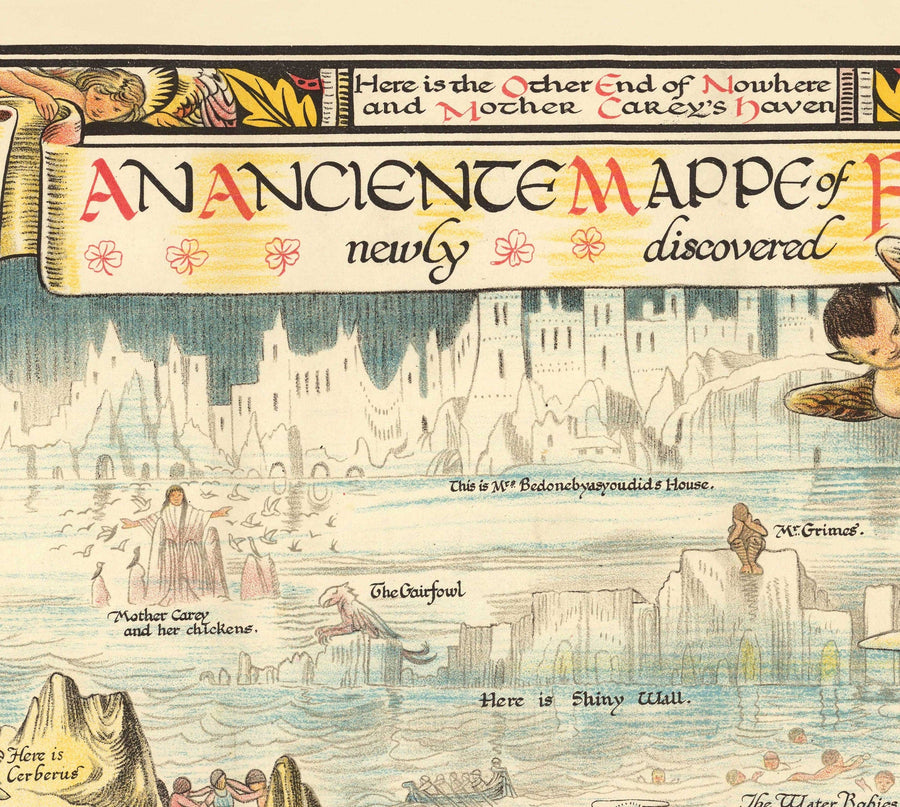 Here is the Other End of Nowhere
and Mother Carey's Haven
AN ANCIENTE MAPPE of F
newly discovered
This is Mrs Bedonebyasyoudids House.
Mr. Grimes.
The Gairfowl
Mother Carey
and her chickens.
Here is Shiny Wall.
Here is
Cerberus
The Water Babies